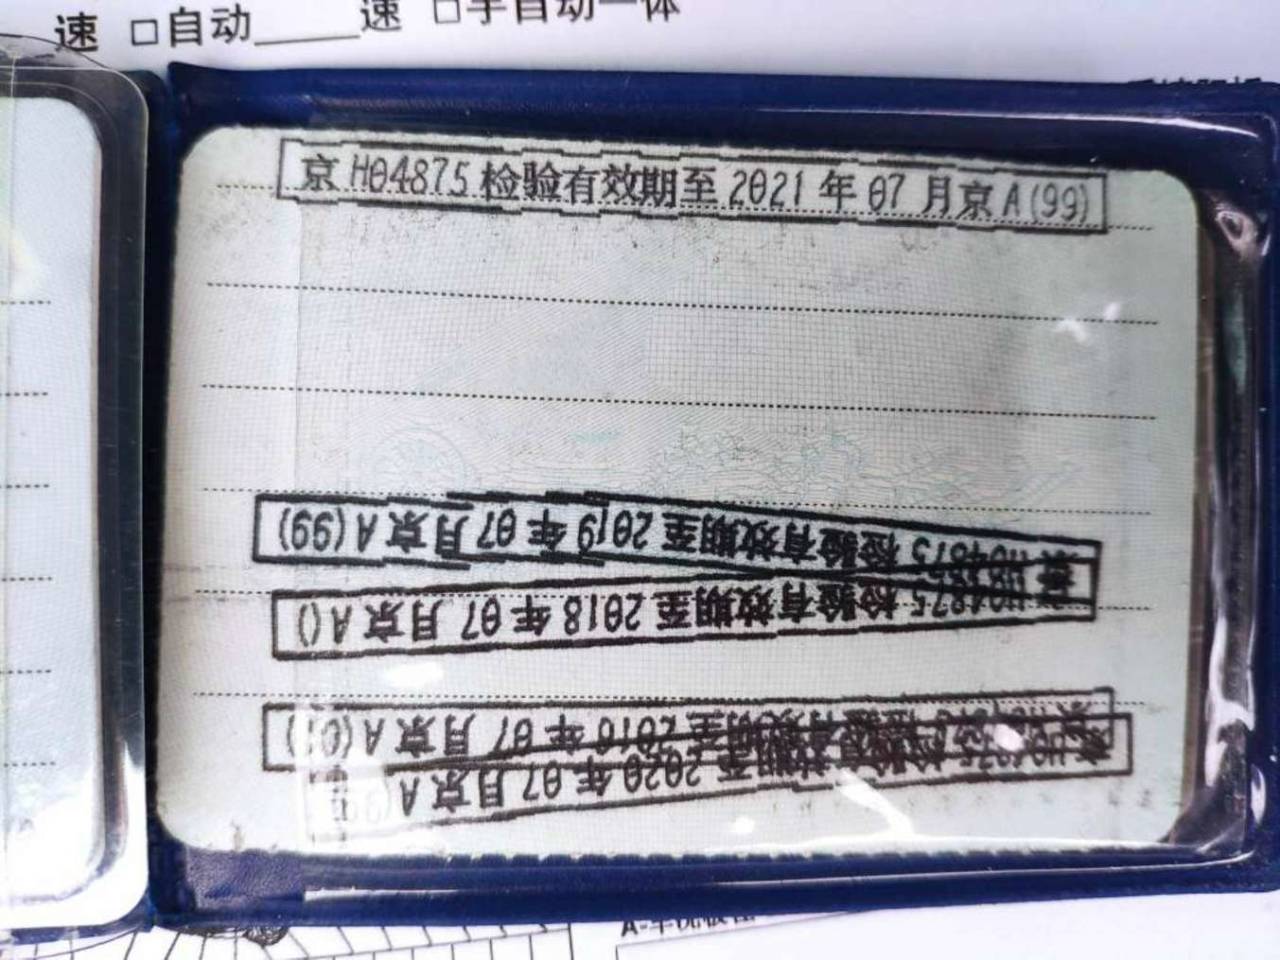 速 □自动____速 □手自动一体
京 H04875 检验有效期至 2021 年 07 月京 A (99)
京 H04875 检验有效期至 2019 年 07 月京 A (99)
H04875 检验有效期至 2018 年 07 月京 A ()
检验有效期至 2016 年 07 月京 A (01)
京 H04875 检验有效期至 2020 年 07 月京 A (99)